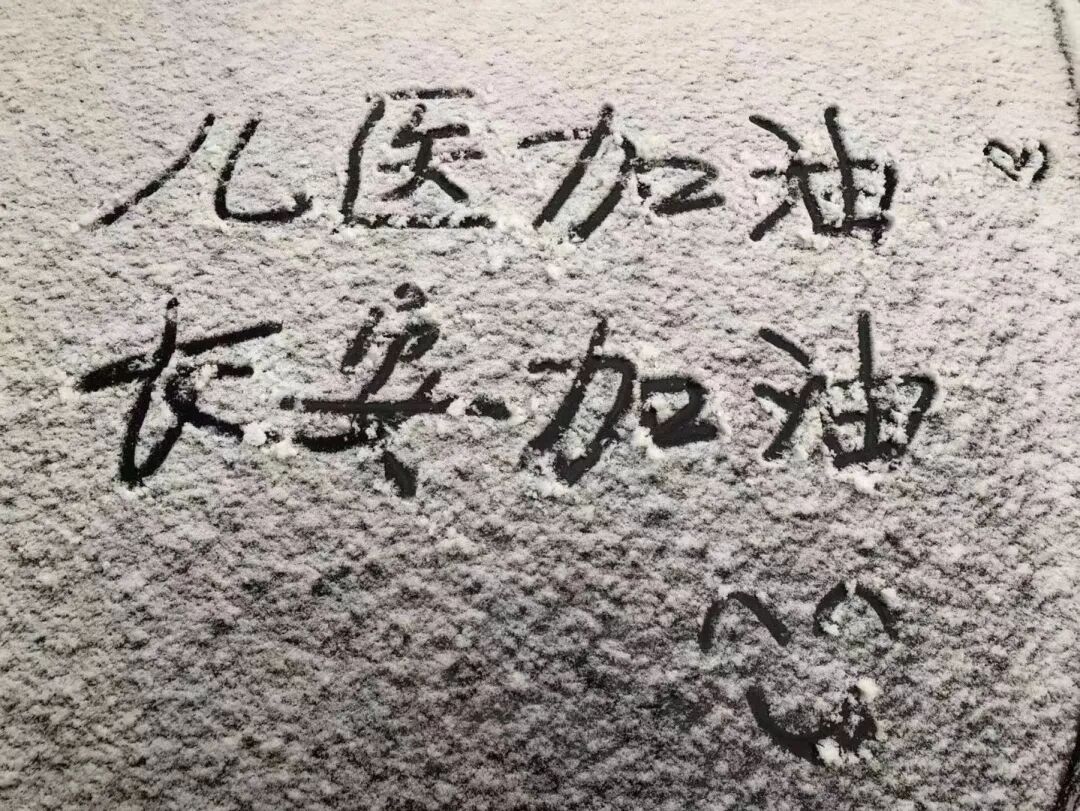 儿医加油
长安加油